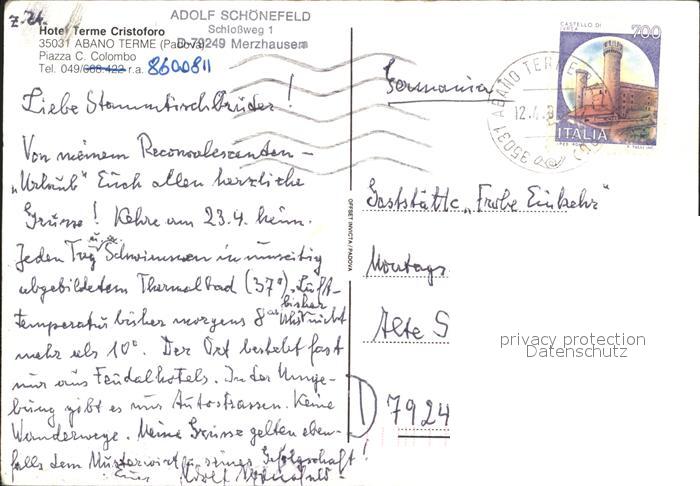 z. Zt.
ADOLF SCHÖNEFELD
Schloßweg 1
D-79249 Merzhausen
Hotel Terme Cristoforo
35031 ABANO TERME (Padova)
Piazza C. Colombo
Tel. 049/668 422 r.a. 8600811
Liebe Stammtischbrüder!
Von meinem Reconvaleszenten-
"Urlaub" Euch allen herzliche
Grüsse! Kehre am 23.4. heim.
Jeden Tag u.a. Schwimmen in umseitig
abgebildetem Thermalbad (37°). Luft-
temperatur bisher morgens 8° bisher nicht
mehr als 10°. Der Ort besteht fast
nur aus Feudalhotels. In der Umge-
bung gibt es nur Autostrassen. Keine
Wanderwege. Meine Grüsse gelten eben-
falls dem Musterwirt u. seiner Gefolgschaft!
Euer Adolf Schönefeld
OFFSET INVICTA / PADOVA
Germania
CASTELLO DI
IVREA
700
ITALIA
35031 ABANO TERME
12.4.
Gaststätte "Frohe Einkehr"
Montags
Alte S
D 7924
privacy protection
Datenschutz